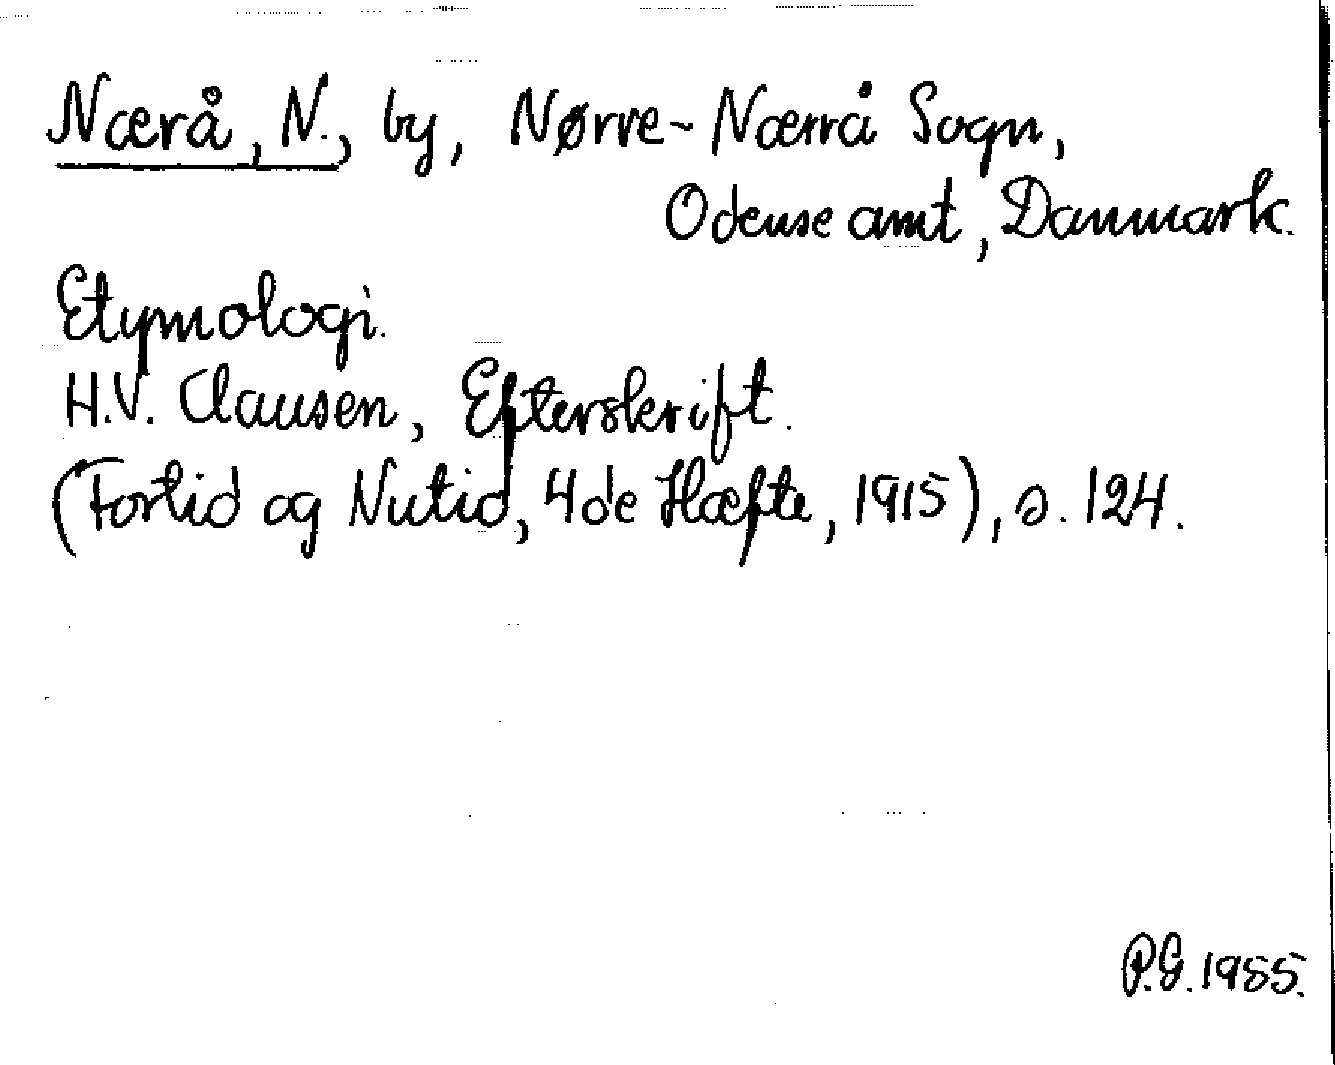 Nærå, N., by, Nørre-Nærrå Sogn,
Odense amt, Danmark.
Etymologi.
H.V. Clausen, Efterskrift.
(Fortid og Nutid, 4de Hæfte, 1915), s. 124.
P.G. 1985.